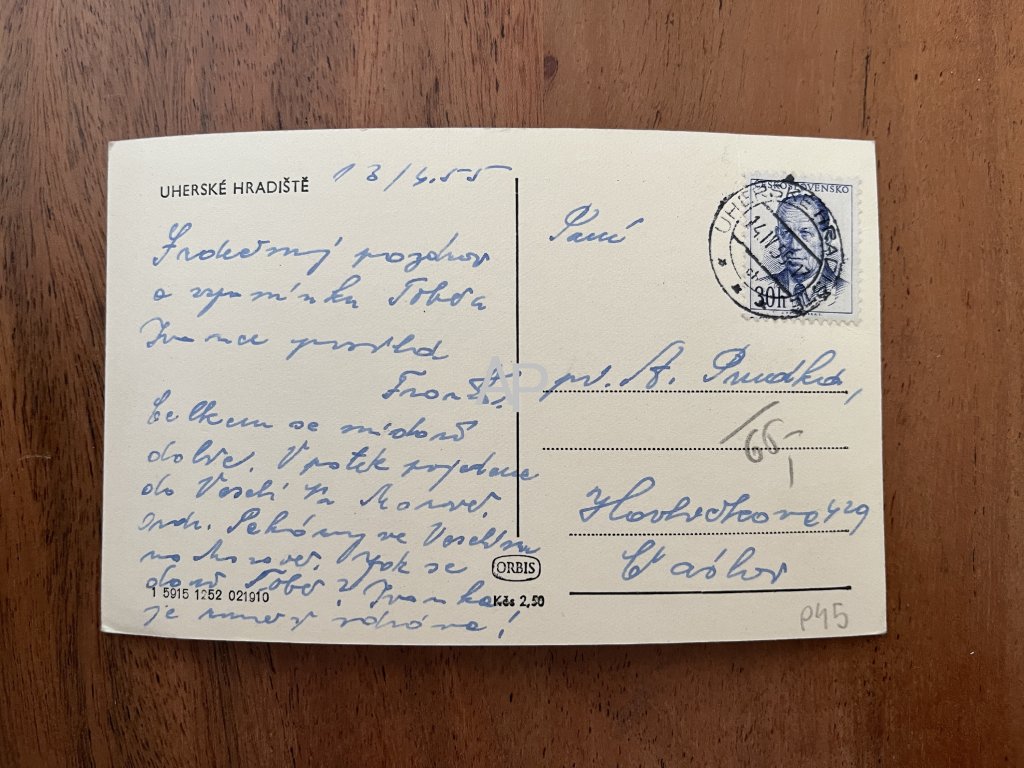 UHERSKÉ HRADIŠTĚ
13/4.55
Srdečný pozdrav
a vzpomínku Tobě a
Ivance posílá
Celkem se
dobře. V pátek pojedeme
do Veselí na Moravě.
Pekárny ve Veselí
na Moravě. Jak se
daří Tobě? Ivanka
je zdráva!
1 5915 1252 021910
ORBIS
Kčs 2,50
ČESKOSLOVENSKO
30h
UHERSKÉ HRADIŠTĚ
14.IV.55
Paní
A. Prudká,
65,-
Havlíčkova 429
Čáslav
P45
AP